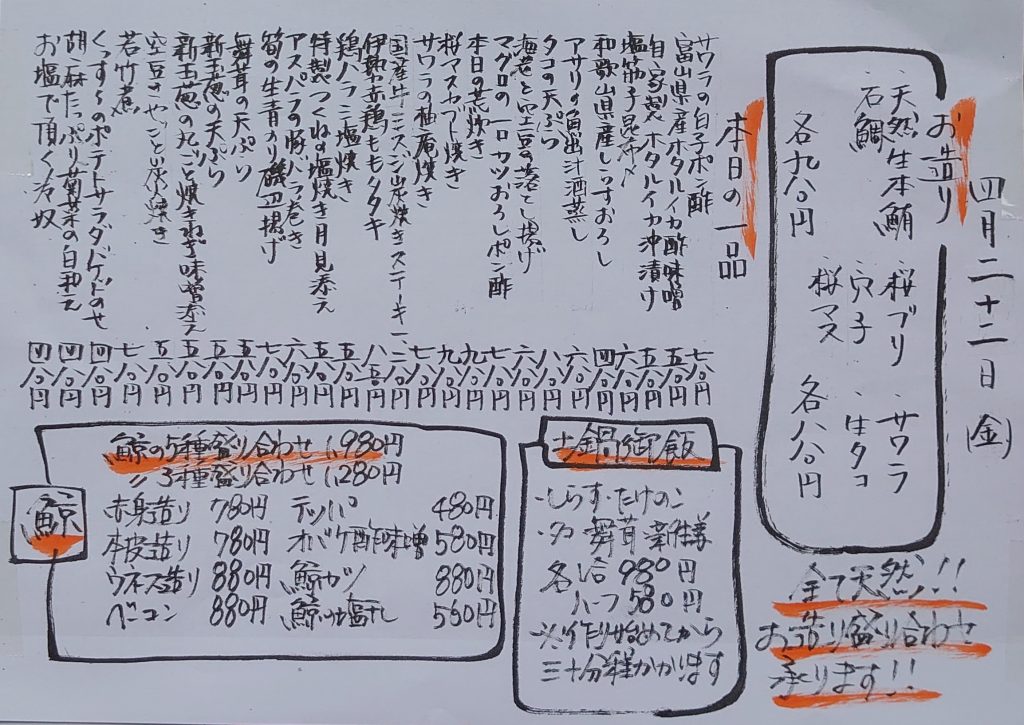 四月二十二日(金)
お造り
・天然生本鮪 ・桜ブリ ・サワラ
・石鯛 ・穴子 ・生タコ
・桜マス
各九八〇円 各八八〇円
全て天然!!
お造り盛り合わせ
承ります!!
本日の一品
サワラの白子ポン酢 七八〇円
富山県産ホタルイカ酢味噌 五八〇円
自家製ホタルイカ沖漬け 五八〇円
塩筋子昆布〆 六八〇円
和歌山県産しらすおろし 四八〇円
アサリの魚出汁酒蒸し 六八〇円
タコの天ぷら 八八〇円
海老と空豆の落とし揚げ 六八〇円
マグロの一口カツおろしポン酢 七八〇円
本日の荒炊き 九八〇円
桜マスカブト焼き 九八〇円
サワラの柚庵焼き 七八〇円
国産牛ミスジ炭焼きステーキ 一、二八〇円
伊勢赤鶏ももタタキ 八五〇円
鶏ハラミ塩焼き 五八〇円
特製つくねの塩焼き月見添え 五八〇円
アスパラの豚バラ巻き 六八〇円
筍の生青のり磯辺揚げ 七八〇円
舞茸の天ぷら 五八〇円
新玉葱の天ぷら 五八〇円
新玉葱の丸ごと焼きねぎ味噌添え 五八〇円
空豆のさやごと炭焼き 五八〇円
若竹煮 七八〇円
くっすんのポテトサラダバゲットのせ 四八〇円
胡麻たっぷり菊菜の白和え 四八〇円
お塩で頂く冷奴 四八〇円
土鍋御飯
・しらす・たけのこ
・舞茸
各1合 980円
ハーフ 580円
※作り始めてから
三十分程かかります
鯨
鯨の5種盛り合わせ 1,980円
〃 3種盛り合わせ 1,280円
赤身造り 780円 テッパ 480円
本皮造り 780円 オバケ酢味噌 580円
ウネス造り 880円 鯨カツ 880円
ベーコン 880円 鯨の塩干し 560円